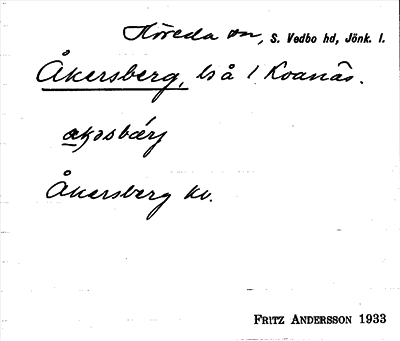 Höreda sn, S. Vedbo hd, Jönk. l.
Åkersberg, ls å 1 Koanäs.
Åkersberg kv.
FRITZ ANDERSSON 1933